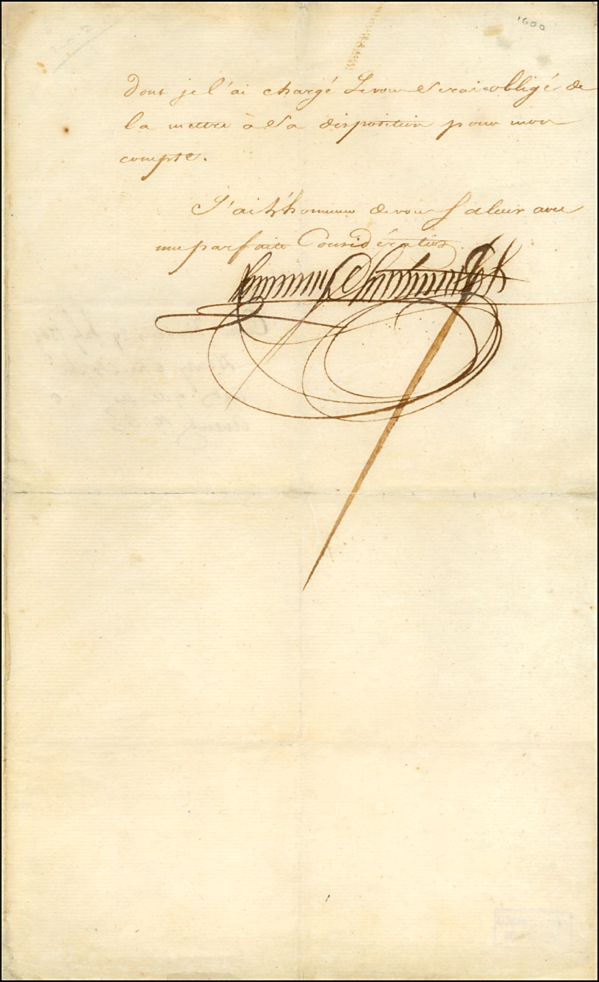 1600
dont je l'ai chargé Je vous Serai obligé de
la mettre à Sa disposition pour mon
compte.
J'ai L'honneur de vous Saluer avec
une parfaite Considération